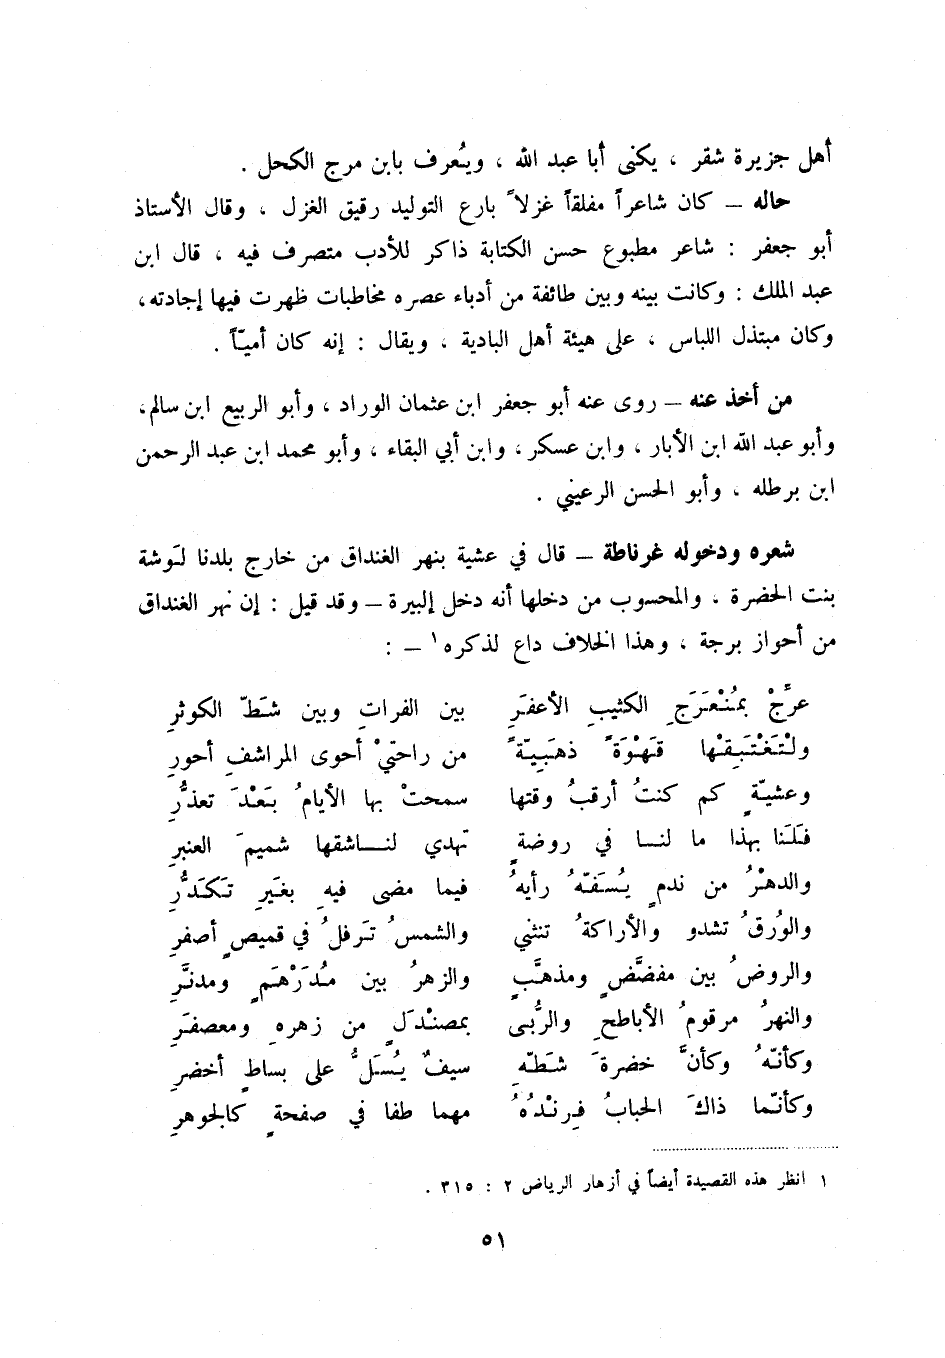 أهل جزيرة شقر ، يكنى أبا عبد الله ، ويُعرف بابن مرج الكحل .
حاله – كان شاعراً مفلقاً غزلاً بارع التوليد رقيق الغزل ، وقال الأستاذ
أبو جعفر : شاعر مطبوع حسن الكتابة ذاكر للأدب متصرف فيه ، قال ابن
عبد الملك : وكانت بينه وبين طائفة من أدباء عصره مخاطبات ظهرت فيها إجادته ،
وكان مبتذل اللباس ، على هيئة أهل البادية ، ويقال : إنه كان أميّاً .
من أخذ عنه – روى عنه أبو جعفر ابن عثمان الوراد ، وأبو الربيع ابن سالم ،
وأبو عبد الله ابن الأبار ، وابن عسكر ، وابن أبي البقاء ، وأبو محمد ابن عبد الرحمن
ابن برطله ، وأبو الحسن الرعيني .
شعره ودخوله غرناطة – قال في عشية بنهر الغنداق من خارج بلدنا لَوشة
بنت الحضرة ، والمحسوب من دخلها أنه دخل إلبيرة – وقد قيل : إن نهر الغنداق
من أحواز برجة ، وهذا الخلاف داع لذكره١ – :
عرِّجْ بمُنْعَرَجِ الكثيبِ الأعفَرِ بين الفراتِ وبين شَطّ الكوثرِ
ولْتَغْتَبِقْها قَهْوَةً ذهَبِيّةً من راحتيْ أحوى المراشفِ أحورِ
وعشيّةٍ كم كنتُ أرقبُ وقتها سمحتْ بها الأيامُ بَعْدَ تعذُّرِ
فَلَنا بهذا ما لنا في روضةٍ تهدي لناشقها شميمَ العنبرِ
والدهْرُ من ندمٍ يُسَفّهُ رأيهُ فيما مضى فيهِ بغَيرِ تَكَدُّرِ
والوُرقُ تشدو والأراكةُ تنثني والشمسُ تَرفلُ في قميصٍ أصفرِ
والروضُ بين مفضَّضٍ ومذهبٍ والزهرُ بين مُدَرْهَمٍ ومدنَّرِ
والنهرُ مرقومُ الأباطحِ والرُّبى بمصنْدَلٍ من زهرِه ومعصفَرِ
وكأنّهُ وكأنَّ خضرةَ شَطّهِ سيفٌ يُسَلُّ على بساطٍ أخضرِ
وكأنّما ذاكَ الحبابُ فِرنْدُهُ مهما طفا في صفحةٍ كالجوهرِ
١ انظر هذه القصيدة أيضاً في أزهار الرياض ٢ : ٣١٥ .
٥١